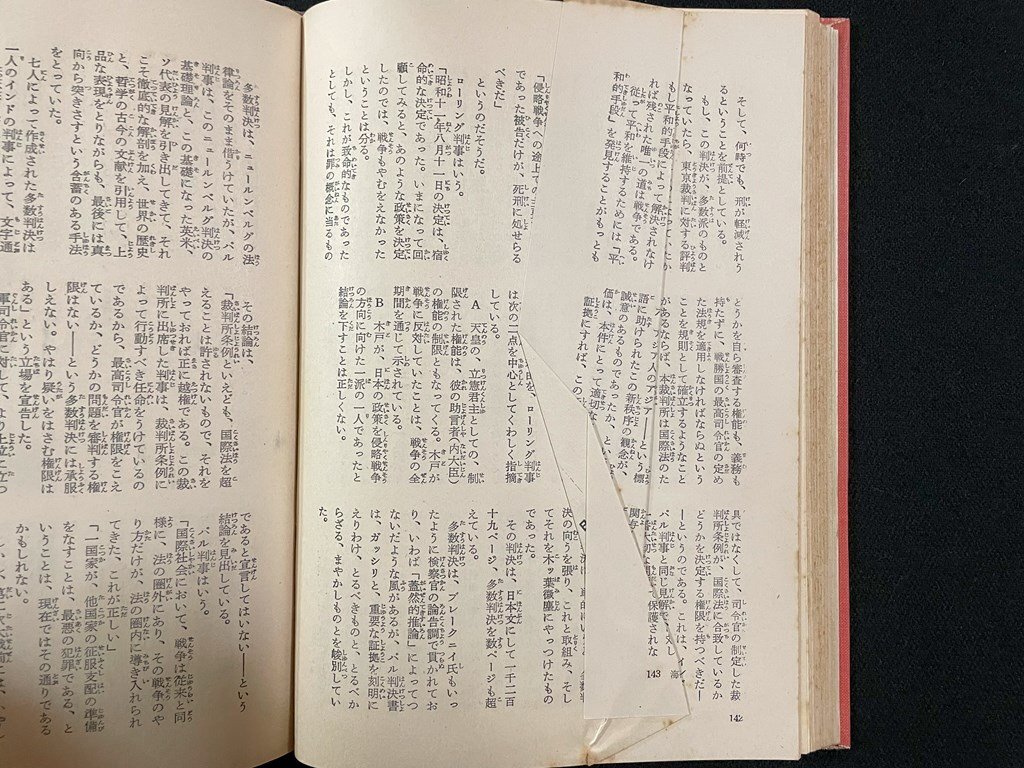 そして、何時でも、刑が軽減されう
るということを前提としている。
もし、この判決が、多数派のものと
なっていたら、東京裁判に対する評判
も
平和的手段によって解決されなけ
れば残された唯一の道は戦争である。
従って平和を維持するためには「平
和的手段」を発見することがもっとも
「侵略戦争への途上で
であった被告だけが、死刑に処せらる
べきだ」
というのだそうだ。
ローリング判事はいう。
「昭和十一年八月十一日の決定は、宿
命的な決定であった。いまになって回
顧してみると、あのような政策を決定
したのでは、戦争もやむをえなかった
ということは分る。
しかし、これが致命的なものであった
としても、それは罪の概念に当るもの
とうかを自ら審査する権能も、義務も
持たずに、戦勝国の最高司令官の定め
た法規を適用しなければならぬという
ことを規則として確立するようなこと
があるならば、本裁判所は国際法のた
アジア人のアジア――という標
語に助けられたこの新秩序の観念が、
誠意のあるものであったか、という
価は、本件にとって適切な
証拠にすれば、この
を、ローリング判事
は次の二点を中心としてくわしく指摘
している。
A 天皇の、立憲君主としての、制
限された権能は、彼の助言者(内大臣)
の権能の制限ともなってくる。木戸が
戦争に反対していたことは、戦争の全
期間を通じて示されている。
B 木戸が、日本の政策を侵略戦争
の方向に向けた一派の一人であったと
結論を下すことは正しくない。
具ではなくして、司令官の制定した裁
判所条例が、国際法に合致しているか
どうかを決定する権限を持つべきだ―
―というのである。これは、イ
パル判事と同じ見解で
保護されな
関与
決の向うを張り、これと取組み、そし
てそれを木ッ葉微塵にやっつけたもの
であった。
その判決は、日本文にして一千二百
十九ページ、多数判決を数ページも超
えている。
多数判決は、ブレークニイ氏もいっ
たように検察官の論告調で貫かれてお
り、いわば「蓋然的推論」によってつ
ないだような風があるが、パル判決書
は、ガッシリと、重要な証拠を刻明に
えりわけ、とるべきものと、とるべか
らざる、まやかしものとを峻別してい
た。
143
142
多数判決は、ニュールンベルグの法
律論をそのまま借りうけていたが、パル
判事は、このニュールンベルグ判決の
基礎理論と、この基礎になった英米、
ソ代表の見解を引き出してきて、それ
こそ徹底的な解剖を加え、世界の歴史
と、哲学の古今の文献を引用して、上
品な表現をとりながらも、最後には真
向から突きさすという含蓄のある手法
をとっていた。
七人によって作成された多数判決は
一人のインドの判事によって、文字通
その結論は、
「裁判所条例といえども、国際法を超
えることは許されないもので、それを
やっておれば正に越権である。この裁
判所に出席した判事は、裁判所条例に
よって行動すべき任命をうけているの
であるから、最高司令官が権限をこえ
ているか、どうかの問題を審判する権
限はない――という多数判決には承服
しえない。やはり疑いをはさむ権限は
ある」という立場を宣告した。
軍司令官に対して、より上位に立つ
であると宣言してはいない――という
結論を見出している。
パル判事はいう。
「国際社会において、戦争は従来と同
様に、法の圏外にあり、その戦争のや
り方だけが、法の圏内に導き入れられ
てきた。これが正しい」
「一国家が、他国家の征服支配の準備
をなすことは、最悪の犯罪である、と
いうことは、現在ではその通りである
かもしれない。